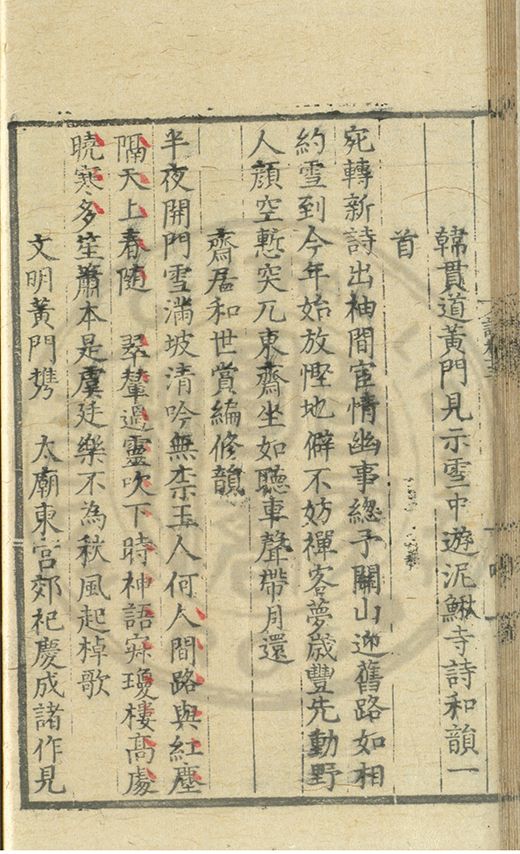 韓貫道黃門見示雪中遊泥鰍寺詩和韻一
首
宛轉新詩出袖間宦情幽事總予關山迎舊路如相
約雪到今年始放慳地僻不妨禪客夢歲豐先動野
人顏空慙突兀東齋坐如聽車聲帶月還
齋居和世賞編修韻
半夜開門雪滿坡清吟無柰玉人何人間路與紅塵
隔天上春隨 翠輦過靈吹下時神語寂瓊樓高處
曉寒多笙簫本是虞廷樂不為秋風起棹歌
文明黃門携 太廟東宮郊祀慶成諸作見